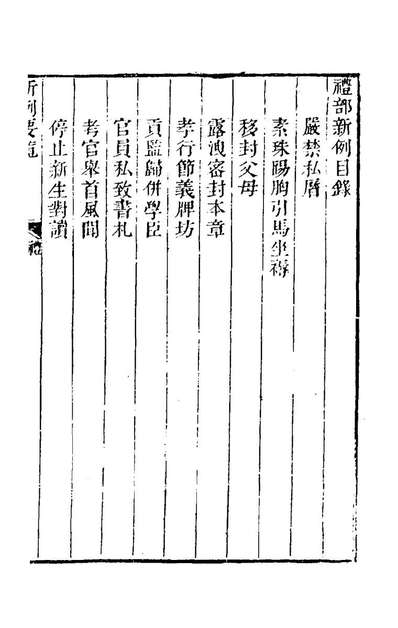 禮部新例目錄
嚴禁私曆
素珠踢胸引馬坐褥
移封父母
露洩密封本章
孝行節義牌坊
貢監歸併學臣
官員私致書札
考官舉首風聞
停止新生對讀
新例要覽
禮